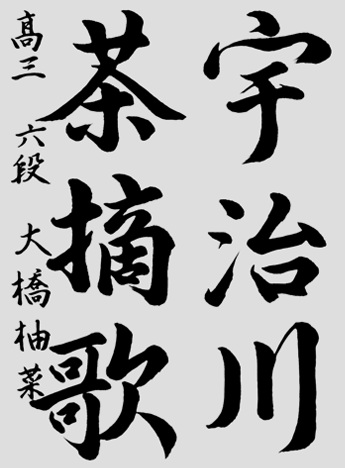 宇治川
茶摘歌
高三 六段 大橋柚菜